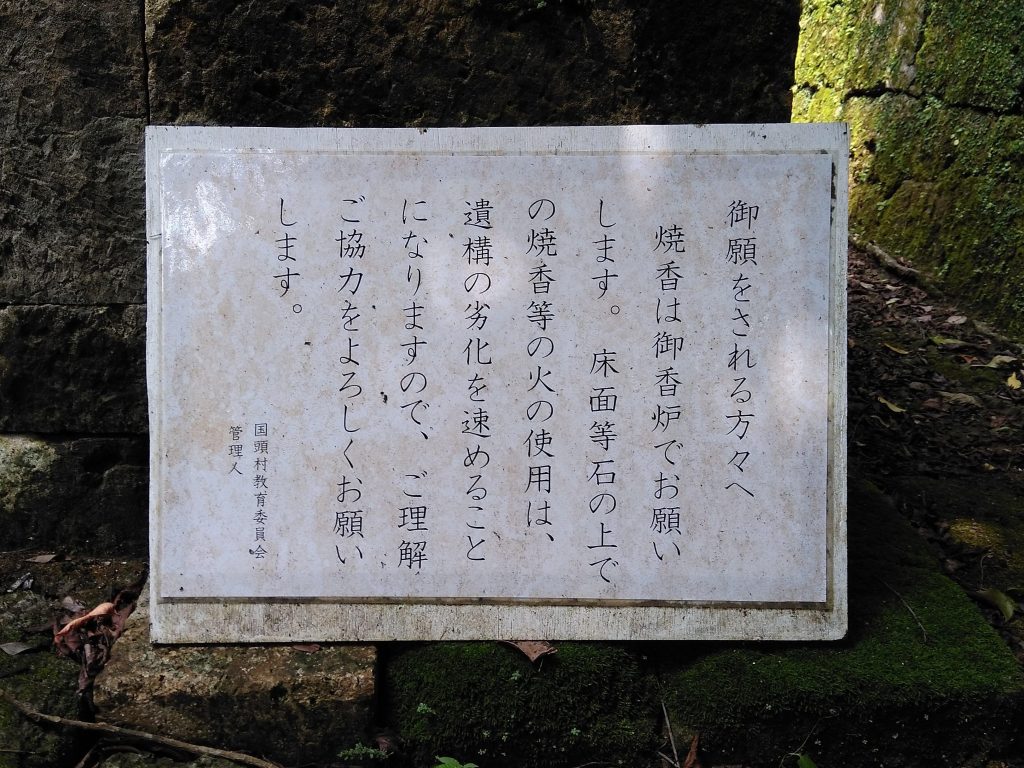 御願をされる方々へ
焼香は御香炉でお願い
します。床面等石の上で
の焼香等の火の使用は、
遺構の劣化を速めること
になりますので、ご理解
ご協力をよろしくお願い
します。
国頭村教育委員会
管理人